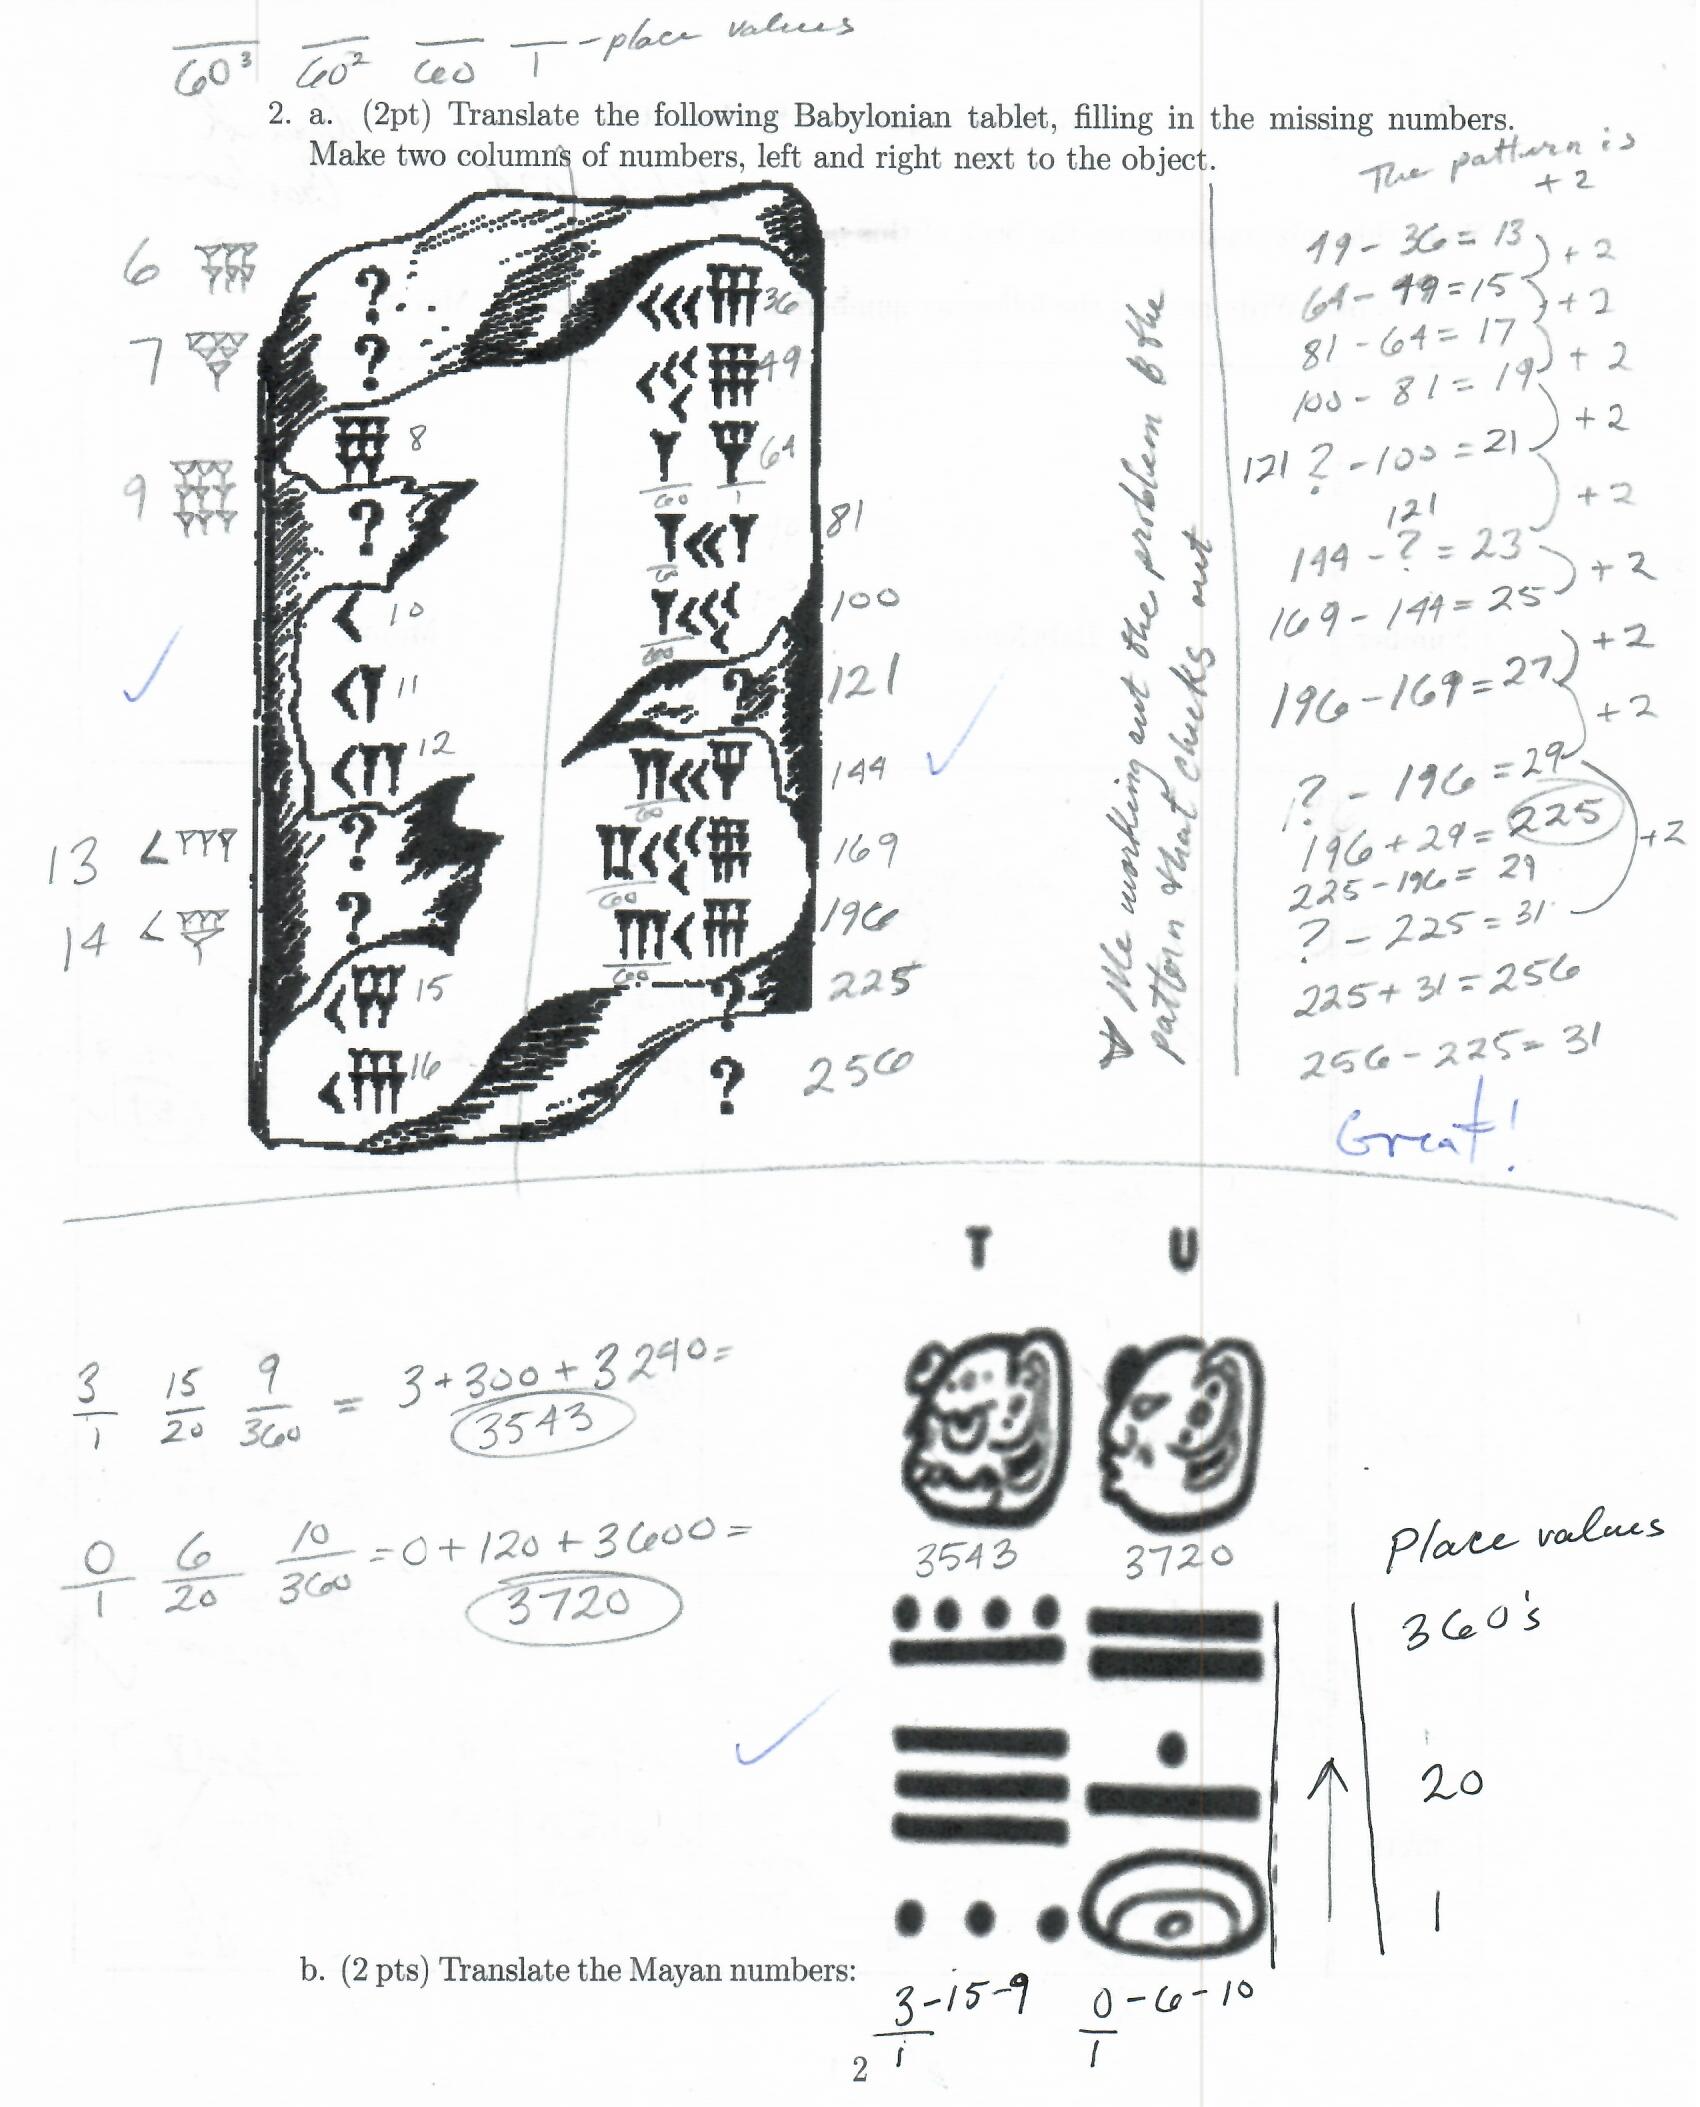 60³ 60² 60 1 - place values
2. a. (2pt) Translate the following Babylonian tablet, filling in the missing numbers.
Make two columns of numbers, left and right next to the object.
The pattern is
+ 2
6
?
36
7
?
49
8
64
60 1
9
?
81
60
10
100
60
11
?
121
12
144
60
13
?
169
60
14
?
196
60
15
?
225
16
?
256
Me working out the problem & the
pattern that checks out
49 - 36 = 13
+ 2
64 - 49 = 15
+ 2
81 - 64 = 17
+ 2
100 - 81 = 19
+ 2
121 ? - 100 = 21
+ 2
121
144 - ? = 23
+ 2
169 - 144 = 25
+ 2
196 - 169 = 27
+ 2
? - 196 = 29
196 + 29 = 225
+ 2
225 - 196 = 29
? - 225 = 31
225 + 31 = 256
256 - 225 = 31
Great!
T U
3/1 15/20 9/360 = 3 + 300 + 3240 =
3543
0/1 6/20 10/360 = 0 + 120 + 3600 =
3720
3543 3720
Place values
360's
20
1
b. (2 pts) Translate the Mayan numbers:
3 - 15 - 9 0 - 6 - 10
1 1
2